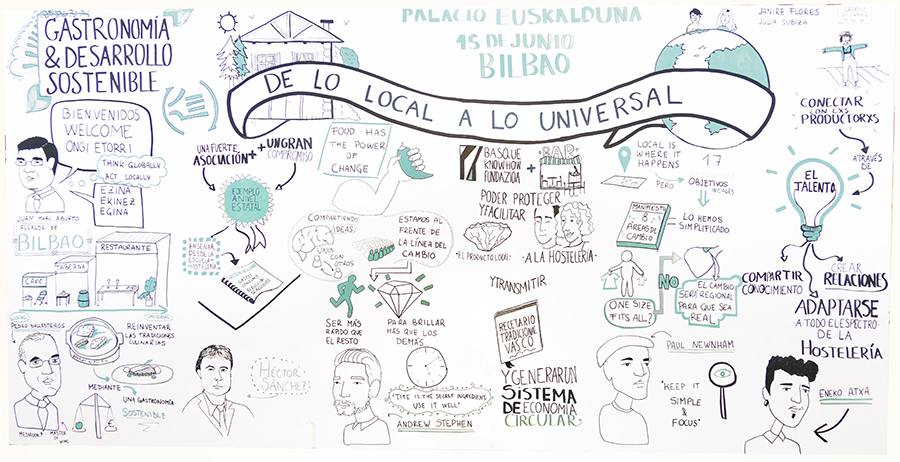 GASTRONOMÍA
& DESARROLLO
SOSTENIBLE
PALACIO EUSKALDUNA
15 DE JUNIO
BILBAO
JANIRE FLORES
JULIA SUBIZA
DE LO LOCAL A LO UNIVERSAL
BIENVENIDOS
WELCOME
ONGI ETORRI
THINK GLOBALLY
ACT LOCALLY
EZINA
EKINEZ
EGINA
ALCALDE DE
BILBAO
RESTAURANTE
TABERNA
CAFÉ
LOCAL
PEDRO BALLESTEROS
REINVENTAR
LAS TRADICIONES
CULINARIAS
MEDIANTE
UNA GASTRONOMÍA
SOSTENIBLE
MEDIADOR
MASTER
OF WINE
UNA FUERTE
ASOCIACIÓN
+
UN GRAN
COMPROMISO
EJEMPLO
A NIVEL
ESTATAL
ENSEÑAR
DESDE LA
ESCUELA
HOSTELERA
HÉCTOR
SÁNCHEZ
FOOD HAS
THE POWER
OF
CHANGE
COMPARTIENDO
IDEAS
UNOS
CON
OTROS
ESTAMOS AL
FRENTE DE
LA LÍNEA DEL
CAMBIO
SER MÁS
RÁPIDO QUE
EL RESTO
PARA BRILLAR
MÁS QUE LOS
DEMÁS
"TIME IS THE SECRET INGREDIENT,
USE IT WELL"
ANDREW STEPHEN
BASQUE
KNOW HOW
FUNDAZIOA
+
BAR
PODER PROTEGER
Y FACILITAR
"EL PRODUCTO LOCAL"
-A LA HOSTELERIA-
Y TRANSMITIR
RECETARIO
TRADICIONAL
VASCO
Y GENERAR UN
SISTEMA
DE ECONOMIA
CIRCULAR
LOCAL IS
WHERE IT
HAPPENS
17
PERO
OBJETIVOS
MANIFIESTO
8
ÁREAS DE
CAMBIO
LO HEMOS
SIMPLIFICADO
ONE SIZE
FITS ALL?
NO
EL CAMBIO
SERÁ REGIONAL
PARA QUE SEA
REAL
PAUL NEWNHAM
"KEEP IT
SIMPLE
&
FOCUS"
CONECTAR
CON LXS
PRODUCTORXS
A TRAVÉS
DE
EL
TALENTO
COMPARTIR
CONOCIMIENTO
CREAR
RELACIONES
ADAPTARSE
A TODO EL ESPECTRO
DE LA
HOSTELERÍA
ENEKO ATXA